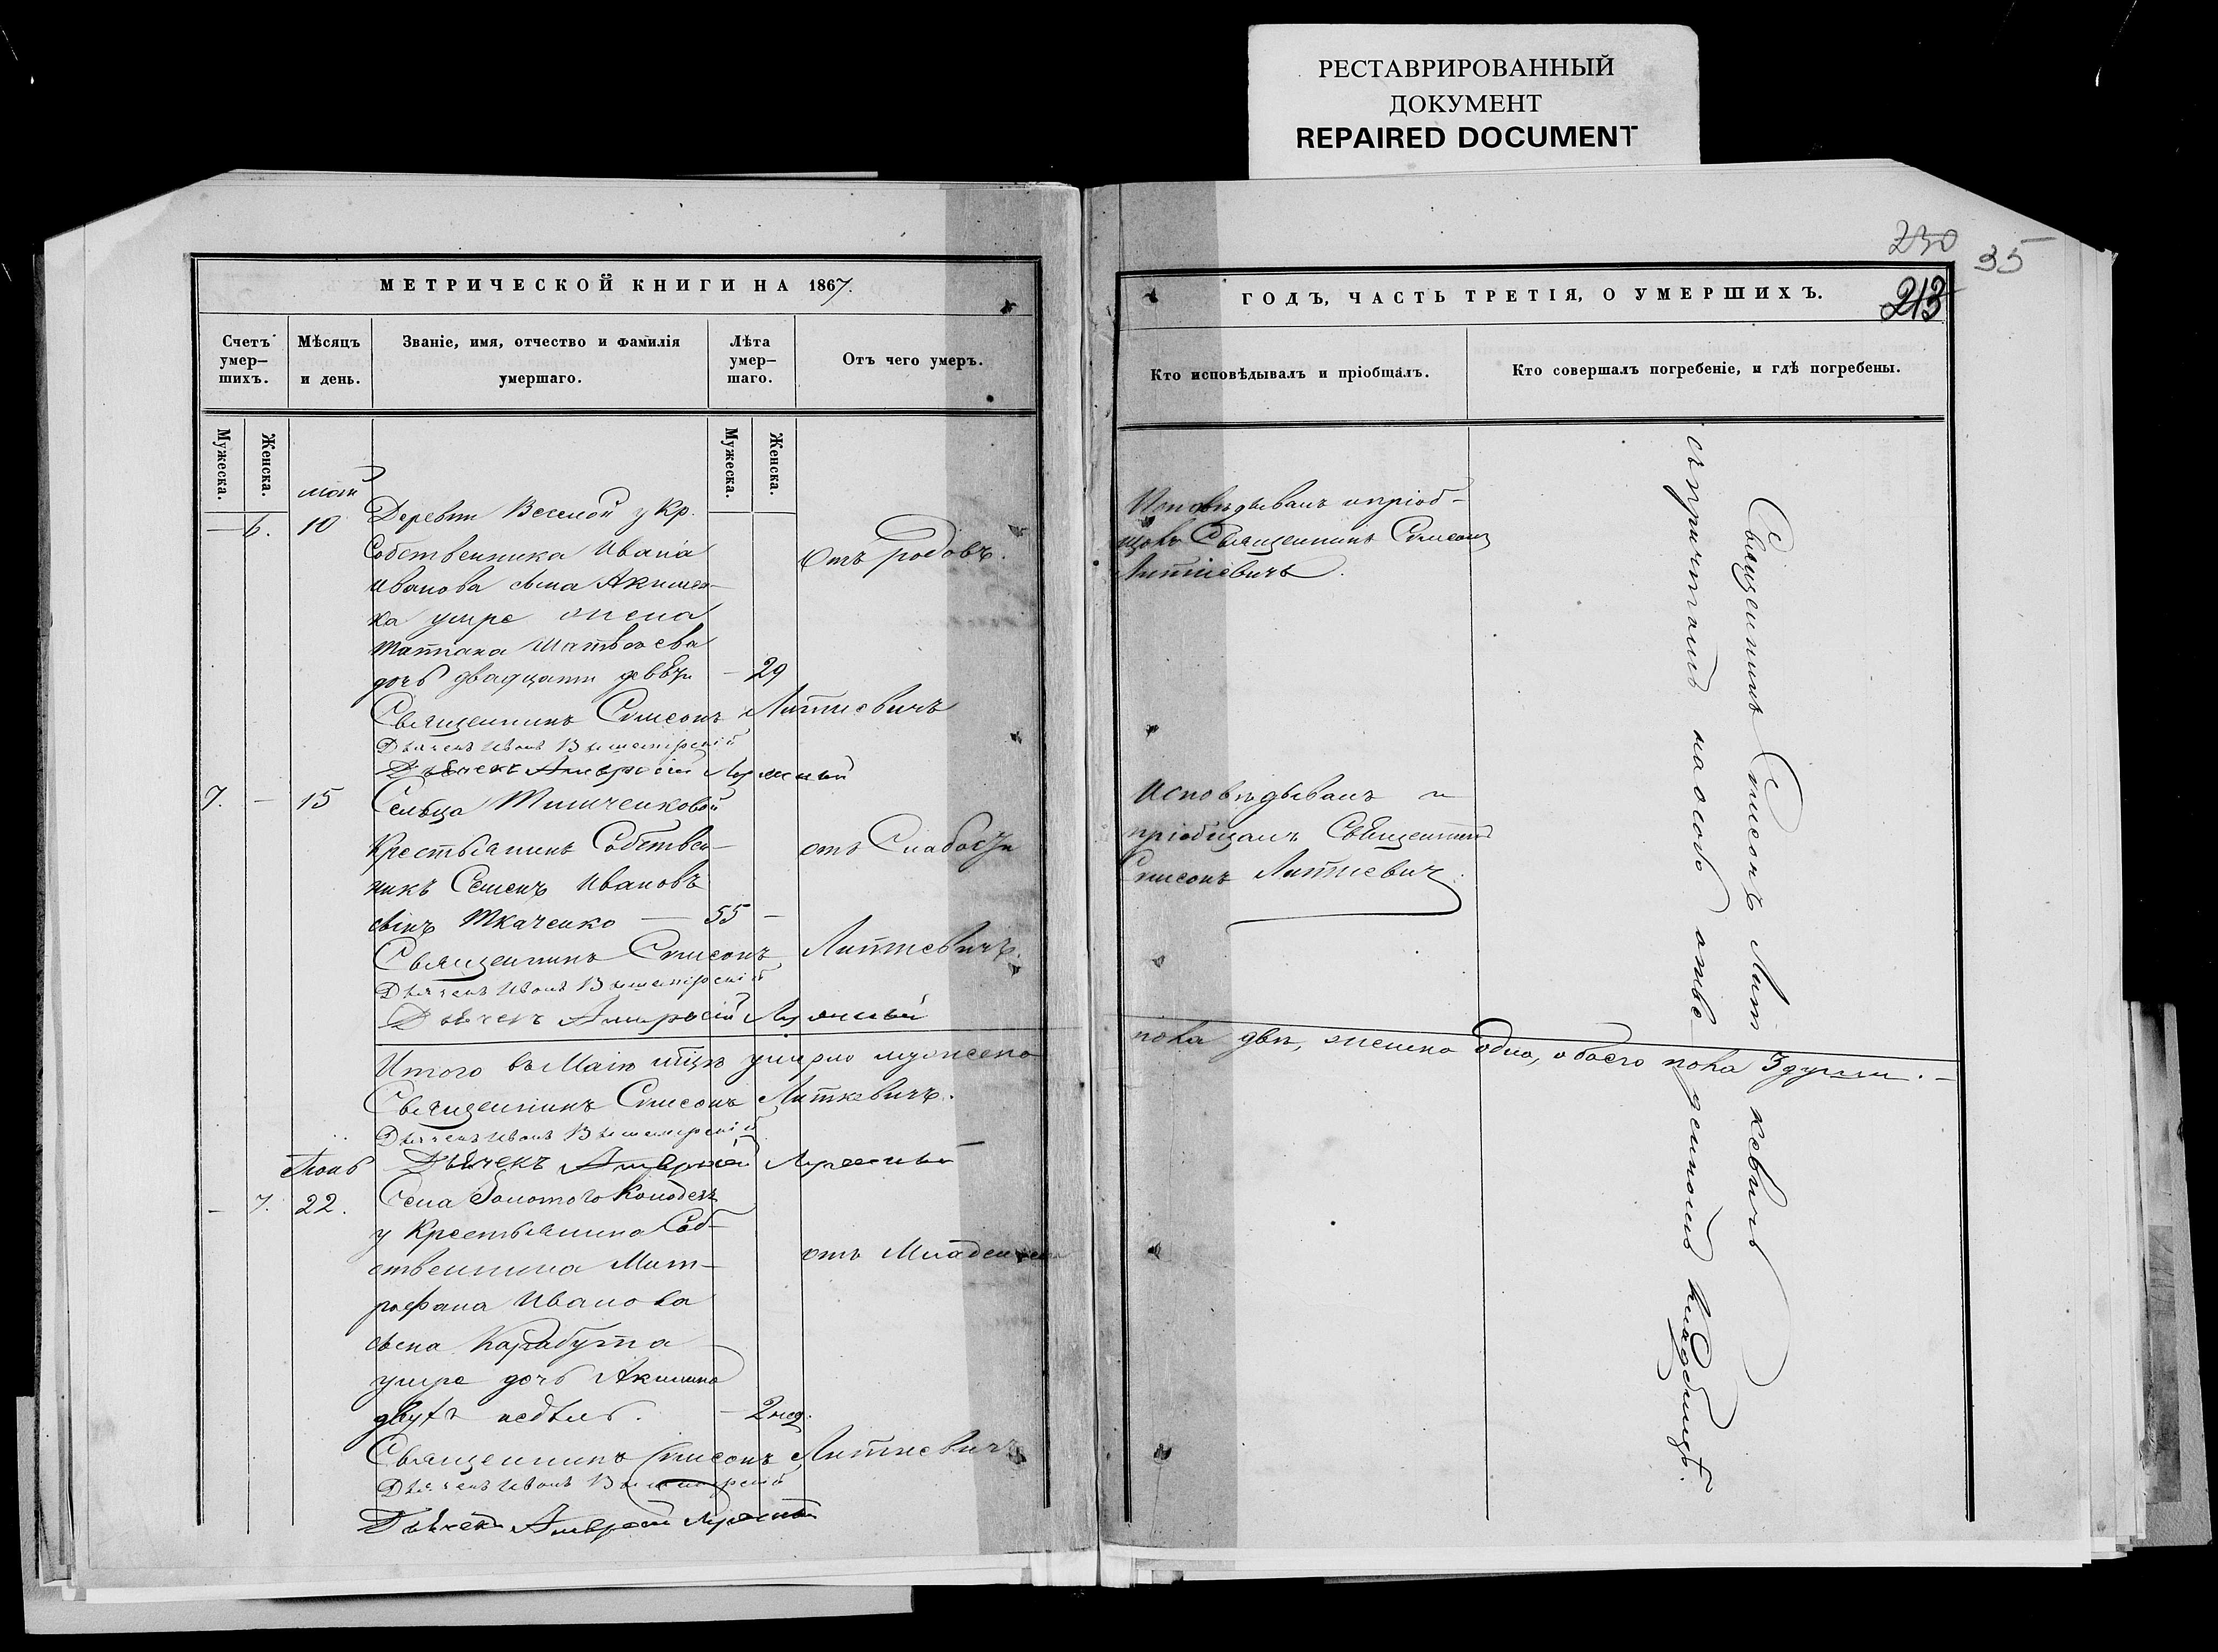 РЕСТАВРИРОВАННЫЙ
ДОКУМЕНТ
REPAIRED DOCUMENT
МЕТРИЧЕСКОЙ КНИГИ НА 1867.
Счетъ умер-
шихъ.
Мѣсяцъ
и день.
Званіе, имя, отчество и фамилія
умершаго.
Лѣта
умер-
шаго.
Отъ чего умеръ.
Мужеска.
Женска.
Мужеска.
Женска.
маій
— 6. 10 Деревни Веселой у Кр.
Собственника Ивана
Отъ родовъ.
Иванова сына Акимен-
ка умре жена
Татіана Матвѣева
дочь двадцати девяти — 29
Священникъ Симеонъ Литкевичъ
Дьячекъ Иванъ
Дьячекъ Амвросій
7. — 15 Сельца
Крестьянинъ Собствен-
отъ Слабости
никъ Семенъ Ивановъ
сынъ Ткаченко — 55 —
Священникъ Симеонъ Литкевичъ.
Дьячекъ Иванъ
Дьячекъ Амвросій
Итого въ Маіѣ м-цѣ умерло мужеска
Священникъ Симеонъ Литкевичъ.
Дьячекъ Иванъ
Іюнь
Дьячекъ Амвросій
— 7. 22. Села Золотого Колодезя
у Крестьянина Соб-
ственника Мит-
отъ
рофана Иванова
сына Карабута
умре дочь Акилина
двухъ недѣль. — 2 нед.
Священникъ Симеонъ Литкевичъ
Дьячекъ Иванъ
Дьячекъ Амвросій
230
35
213
ГОДЪ, ЧАСТЬ ТРЕТІЯ, О УМЕРШИХЪ.
Кто исповѣдывалъ и пріобщалъ.
Кто совершалъ погребеніе, и гдѣ погребены.
Исповѣдывалъ и пріоб-
щалъ Священникъ Симеонъ
Литкевичъ.
Исповѣдывалъ и
пріобщалъ Священникъ
Симеонъ Литкевичъ.
пола два, женска одна, обоего пола 3 души. —
Священникъ Симеонъ Литкевичъ
съ причтомъ на особо отве-
денномъ кладбищѣ.